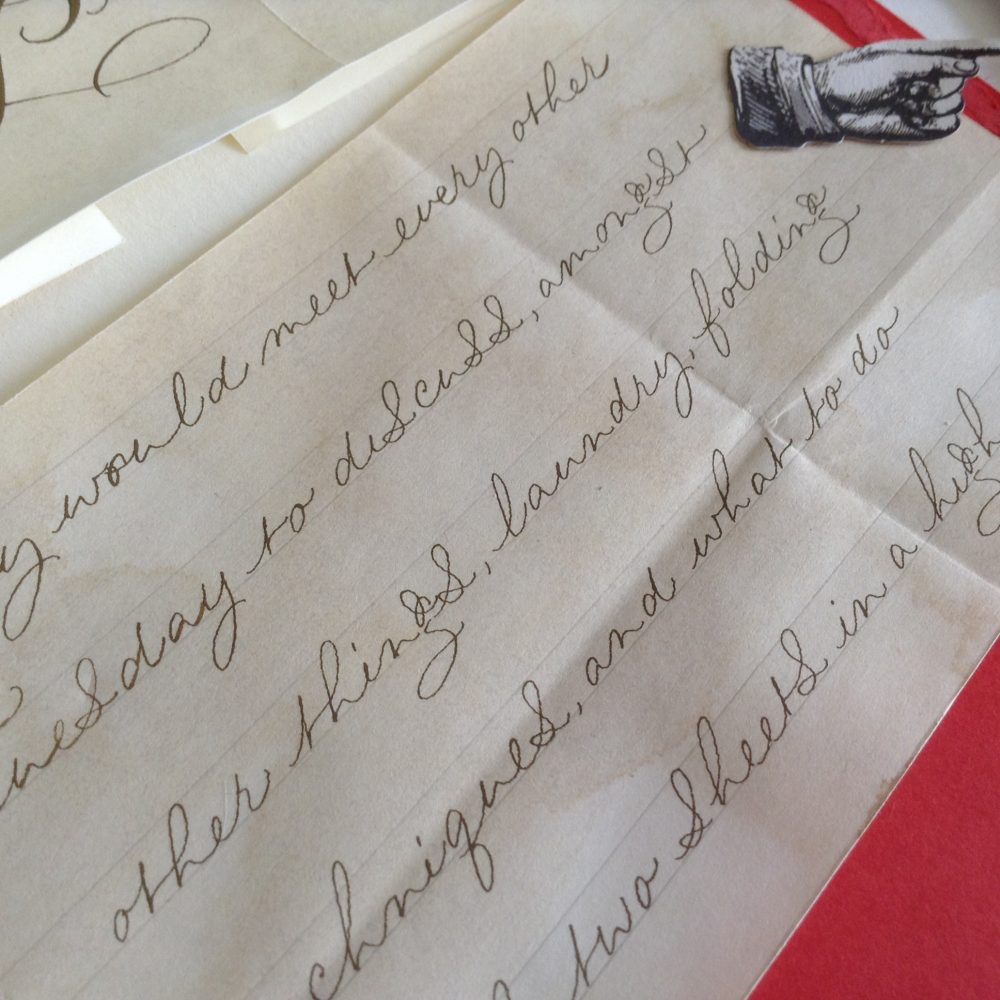 y would meet every other
nesday to discuss, amongst
other things, laundry, folding
chniques, and what to do
two sheets in a high